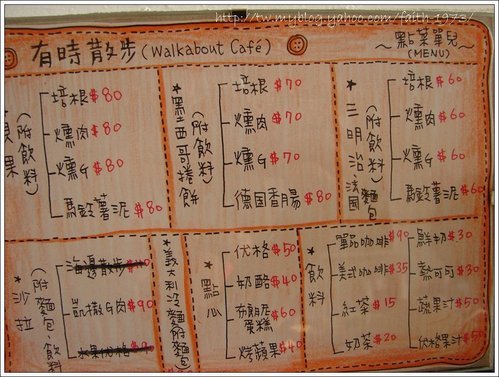 http://tw.myblog.yahoo.com/faith-1973/
有時散步(Walkabout Café)
~點菜單兒~
(MENU)
果
(附飲料)
培根$80
燻肉$80
燻G$80
馬鈴薯泥$80
*墨西哥捲餅
(附飲料)
培根$70
燻肉$70
燻G$70
德国香腸$80
*三明治
(附飲料)
法国麵包
培根$60
燻肉$60
燻G$60
馬鈴薯泥$60
*沙拉
(附麵包、飲料)
海邊散步
凱撒G肉$90
水果优格
*義大利冷麵附麵包
*點心
优格$50
奶酪$40
布朗尼蛋糕$60
烤蘋果$40
*飲料
單品咖啡$90
美式咖啡$35
紅茶$15
奶茶$20
鮮奶$30
熱可可$30
蔬果汁$50
优格果汁$50